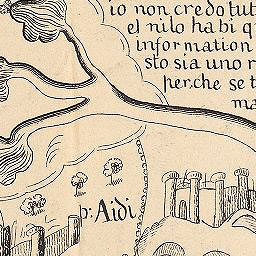 io non credo tut
el nilo habi q
information
sto sia uno r
perche se t
ma
p: Aidi